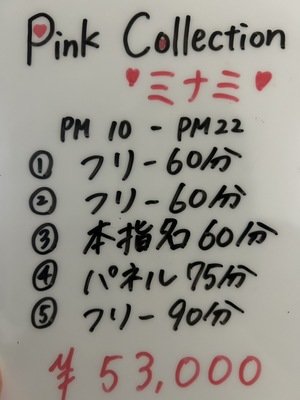 Pink Collection
♥ミナミ♥
PM 10 - PM22
① フリー60分
② フリー60分
③ 本指名60分
④ パネル75分
⑤ フリー90分
¥53,000